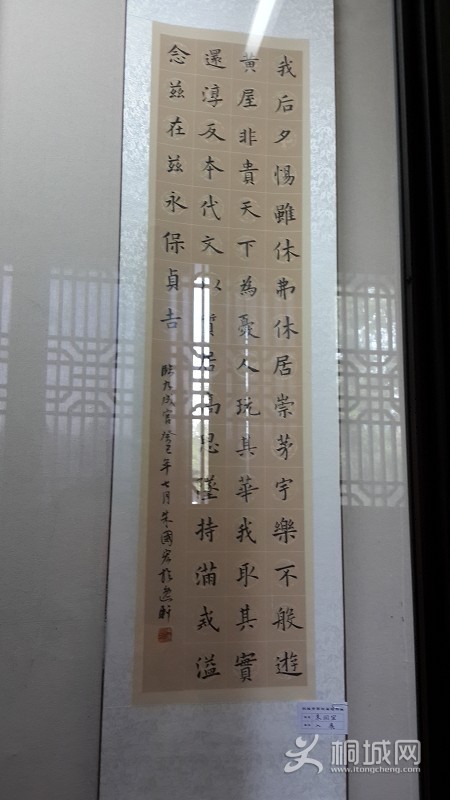 我后夕惕雖休弗休居崇茅宇樂不般遊
黄屋非貴天下為憂人玩其華我取其實
還淳反本代文以質居高思墜持滿戒溢
念兹在兹永保貞吉
臨九成宮癸巳年七月朱國宏於
朱國宏
入展
桐城网
www.itongcheng.com